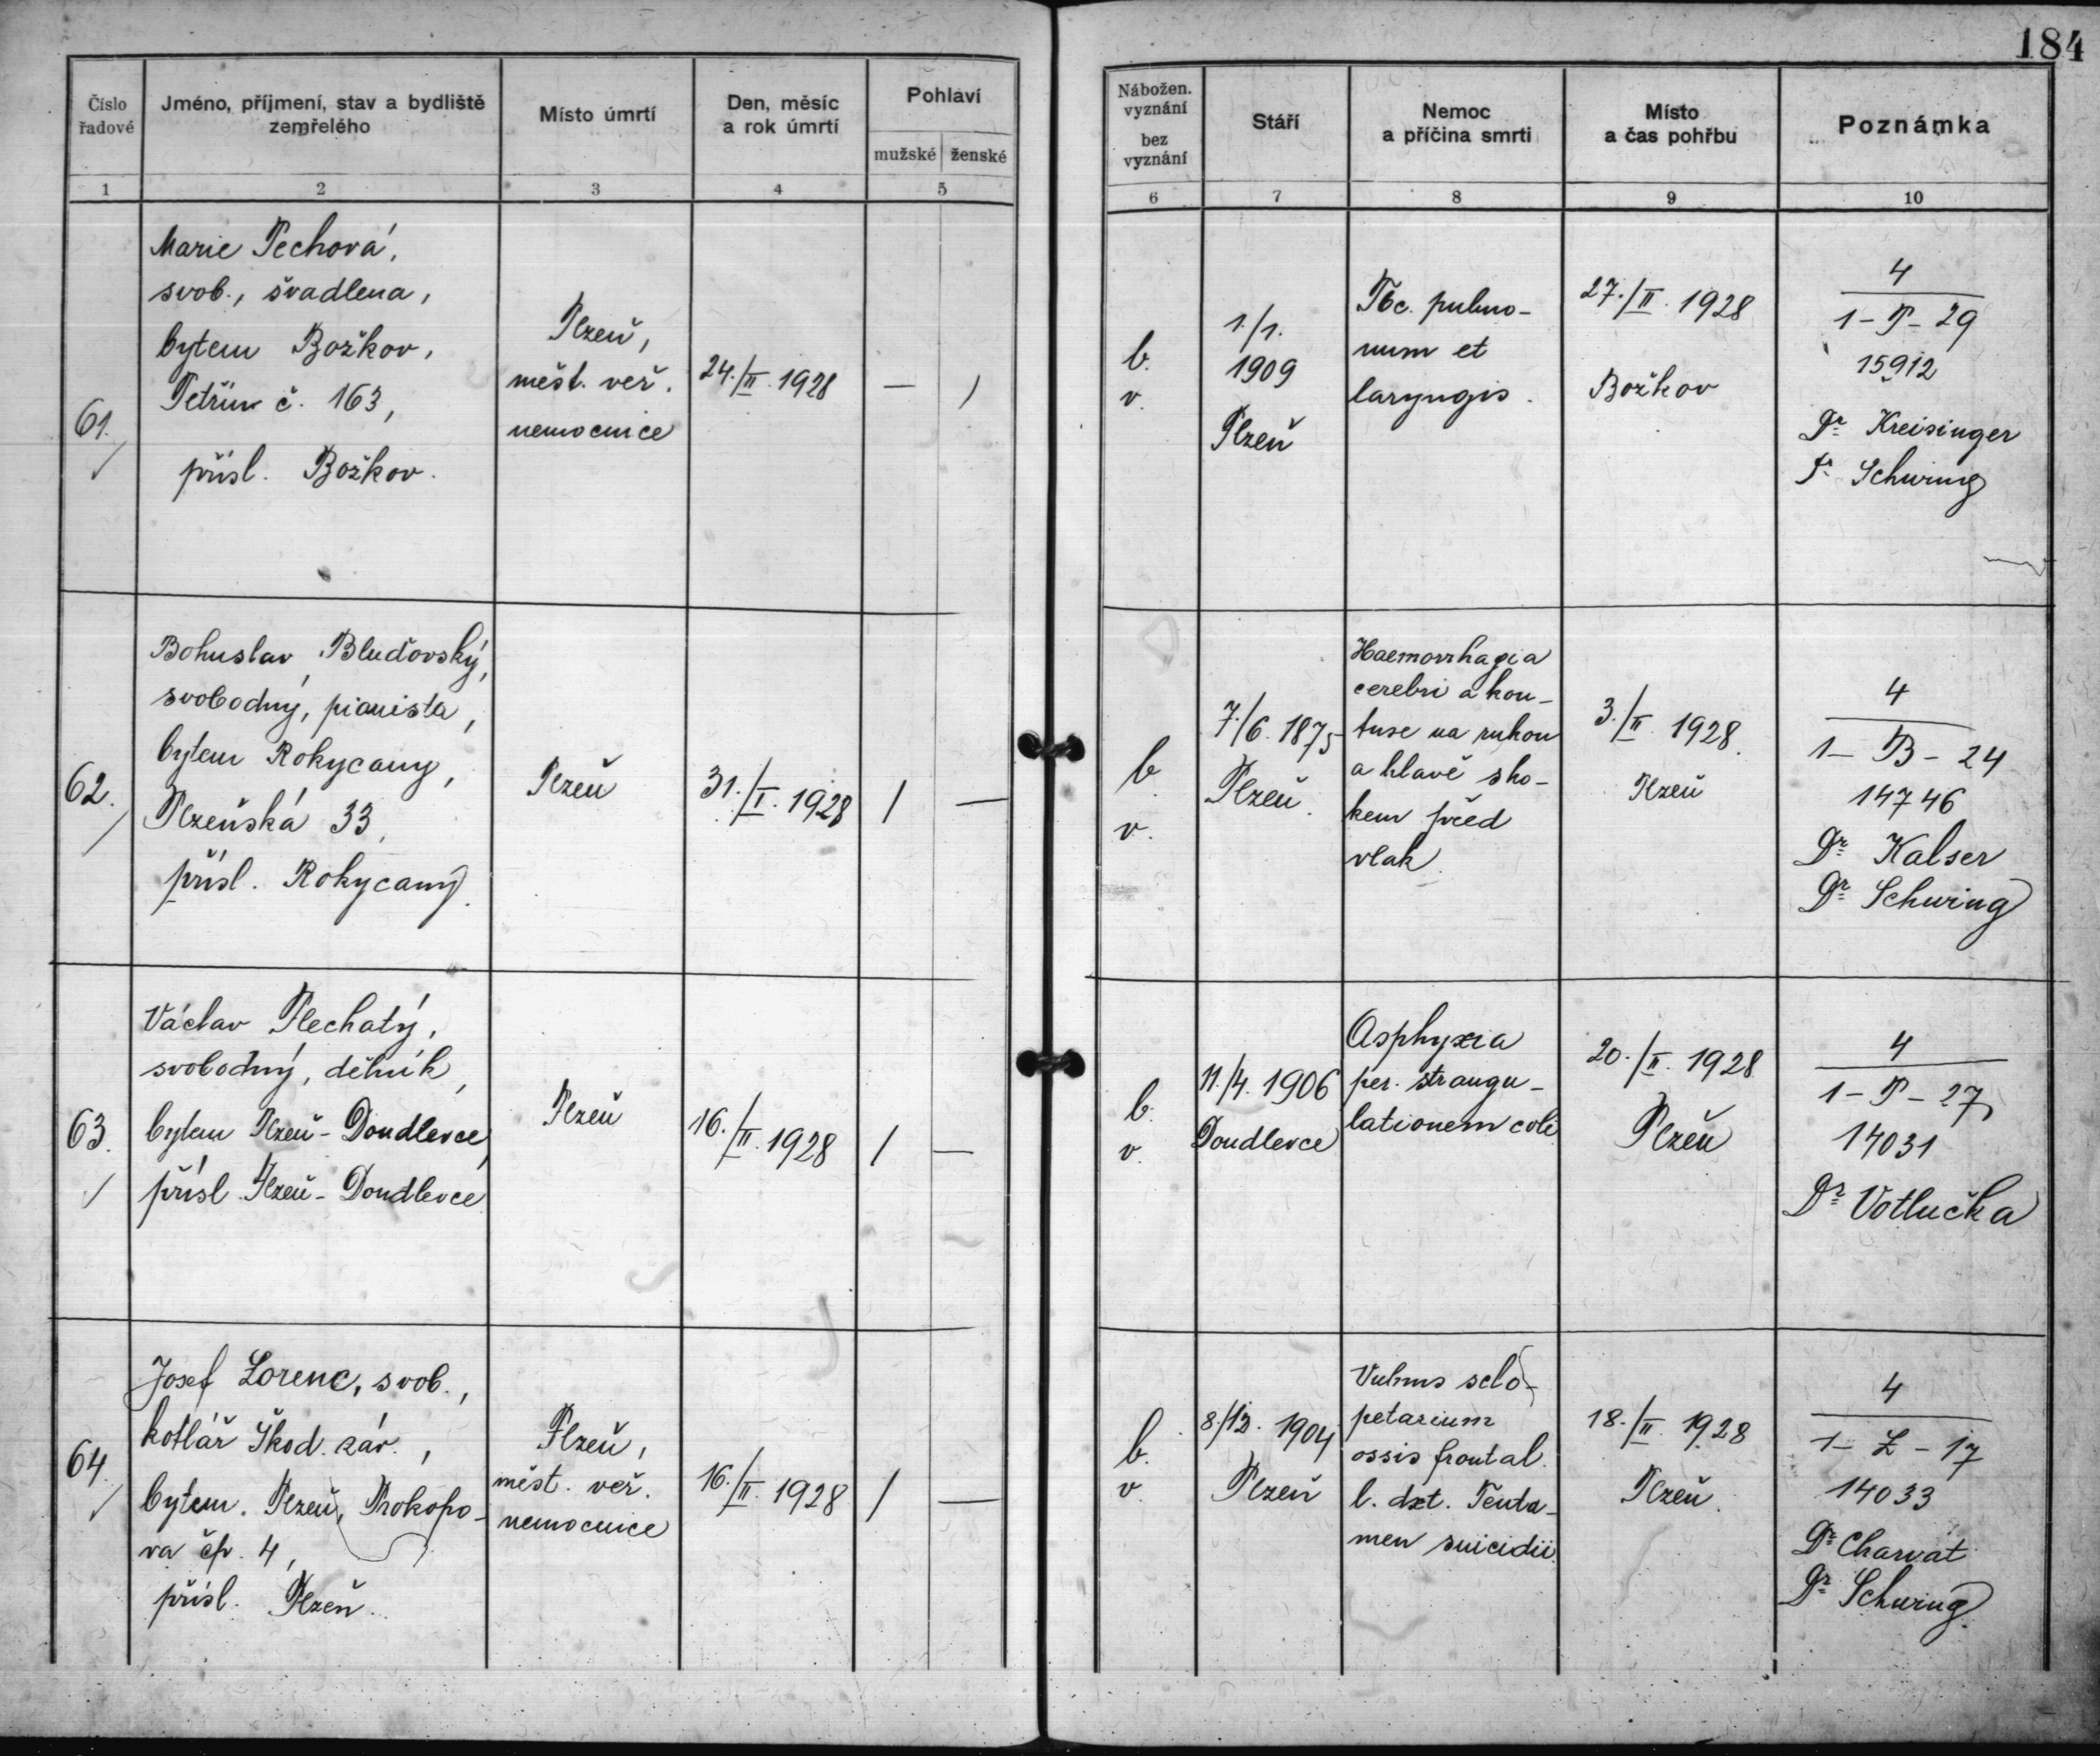 184
Číslo řadové
Jméno, příjmení, stav a bydliště zemřelého
Místo úmrtí
Den, měsíc a rok úmrtí
Pohlaví
mužské ženské
1 2 3 4 5
Nábožen. vyznání
bez vyznání
Stáří
Nemoc a příčina smrti
Místo a čas pohřbu
Poznámka
6 7 8 9 10
61.
Marie Pechová,
svob., švadlena,
bytem Božkov,
Petřín č. 163,
přísl. Božkov.
Plzeň,
měst. veř.
nemocnice
24./II. 1928
— /
b.
v.
1./1.
1909
Plzeň
Tbc. pulmo-
num et
laryngis.
27./II. 1928
Božkov
4
1-P-29
15912
Dr Kreisinger
Dr Schwing
62.
Bohuslav Bluďovský,
svobodný, pianista,
bytem Rokycany,
Plzeňská 33,
přísl. Rokycany.
Plzeň
31./I. 1928
/ —
b.
v.
7./6. 1875
Plzeň.
Haemorrhagia
cerebri a kon-
tuse na rukou
a hlavě sko-
kem před
vlak.
3./II. 1928.
Plzeň
4
1-B-24
14746
Dr Kalser
Dr Schwing
63.
Václav Plechatý,
svobodný, dělník,
bytem Plzeň-Doudlevce,
přísl. Plzeň-Doudlevce
Plzeň
16./II. 1928
/ —
b.
v.
11./4. 1906
Doudlevce
Asphyxia
per. strangu-
lationem coli
20./II. 1928
Plzeň
4
1-P-27
14031
Dr Votlučka
64.
Josef Lorenc, svob.,
kotlář Škod. záv.,
bytem. Plzeň, Prokopo-
va čp. 4,
přísl. Plzeň.
Plzeň,
měst. veř.
nemocnice
16./II. 1928
/ —
b.
v.
8./12. 1904
Plzeň
Vulnus sclo-
petarium
ossis frontal.
l. dxt. Tenta-
men suicidii.
18./II. 1928
Plzeň.
4
1-L-17
14033
Dr Charvát
Dr Schwing.